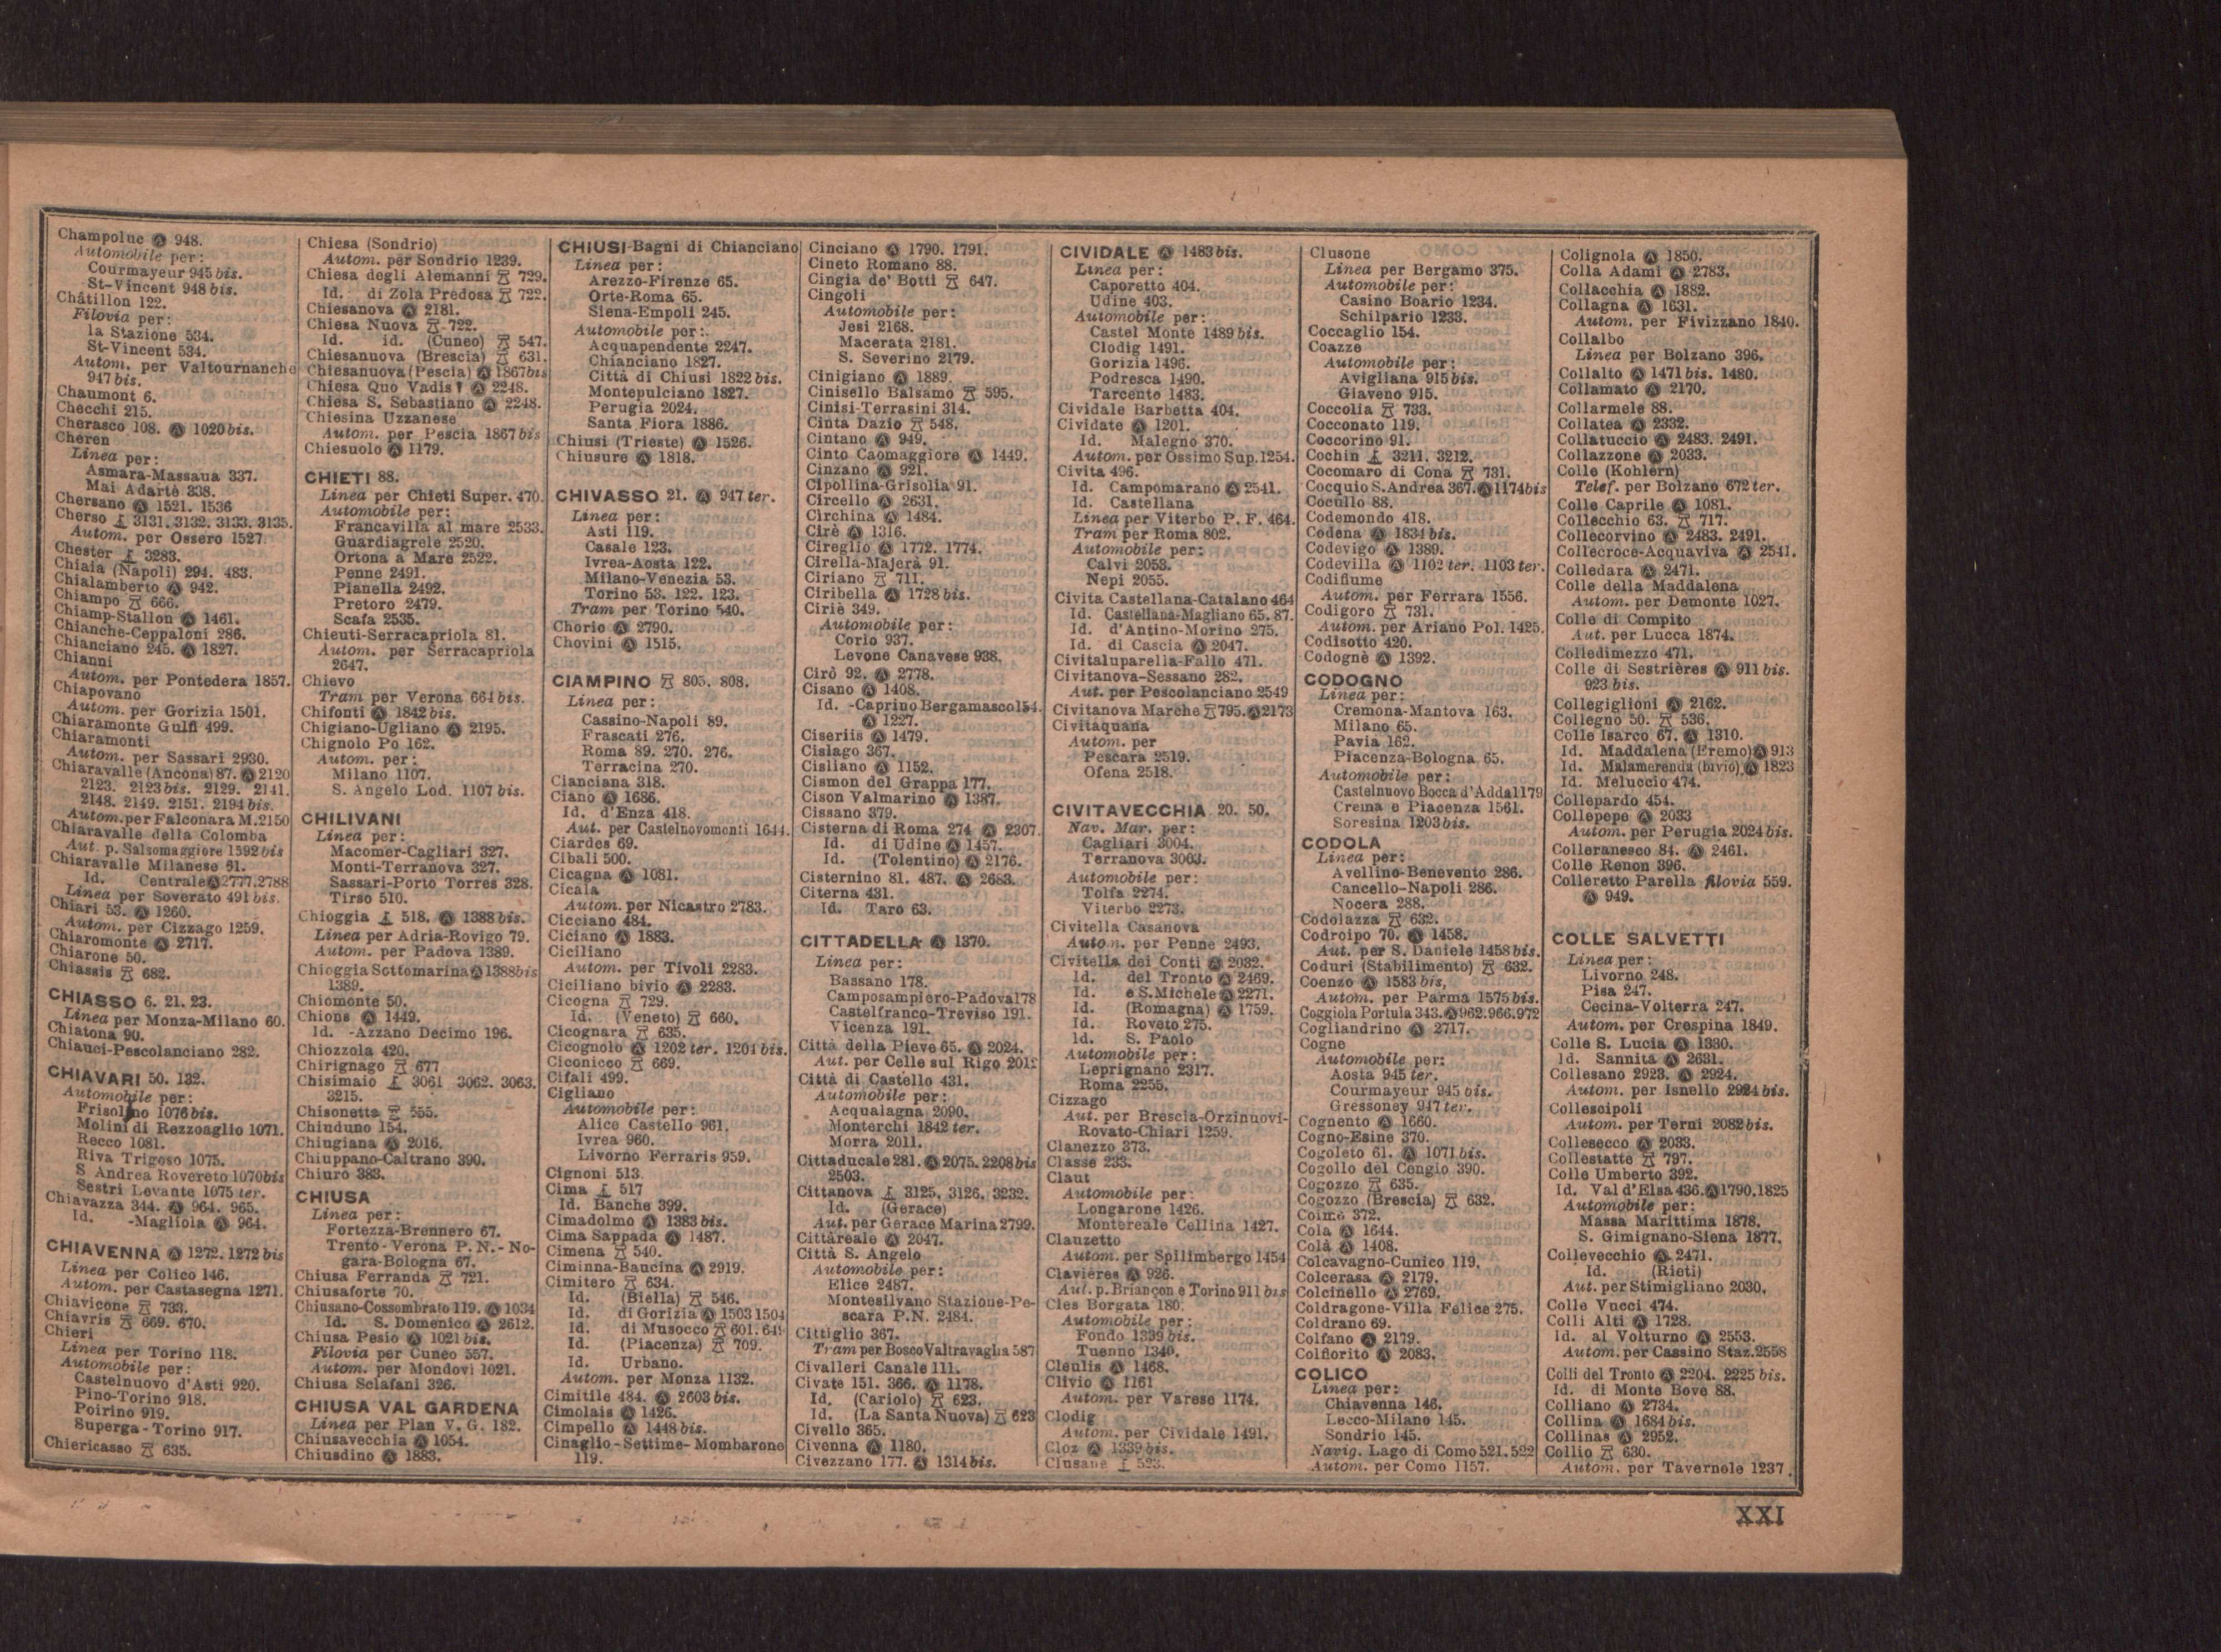 Champoluc Ⓐ 948.
Automobile per:
Courmayeur 945 bis.
St-Vincent 948 bis.
Châtillon 122.
Filovia per:
la Stazione 534.
St-Vincent 534.
Autom. per Valtournanche
947 bis.
Chaumont 6.
Checchi 215.
Cherasco 108. Ⓐ 1020 bis.
Cheren
Linea per:
Asmara-Massaua 337.
Mai Adartè 338.
Chersano Ⓐ 1521. 1536
Cherso 3131. 3132. 3133. 3135.
Autom. per Ossero 1527.
Chester 3283.
Chiaia (Napoli) 294. 483.
Chialamberto Ⓐ 942.
Chiampo 666.
Chiamp-Stallon Ⓐ 1461.
Chianche-Ceppaloni 286.
Chianciano 245. Ⓐ 1827.
Chianni
Autom. per Pontedera 1857.
Chiapovano
Autom. per Gorizia 1501.
Chiaramonte Gulfi 499.
Chiaramonti
Autom. per Sassari 2930.
Chiaravalle (Ancona) 87. Ⓐ 2120
2123. 2123 bis. 2129. 2141.
2148. 2149. 2151. 2194 bis.
Autom. per Falconara M. 2150
Chiaravalle della Colomba
Aut. p. Salsomaggiore 1592 bis
Chiaravalle Milanese 91.
Id. Centrale Ⓐ 2777. 2788
Linea per Soverato 491 bis.
Chiari 53. Ⓐ 1260.
Autom. per Cizzago 1259.
Chiaromonte Ⓐ 2717.
Chiarone 50.
Chiassis 682.
CHIASSO 6. 21. 23.
Linea per Monza-Milano 60.
Chiatona 90.
Chiauci-Pescolanciano 282.
CHIAVARI 50. 132.
Automobile per:
Frisolino 1076 bis.
Molini di Rezzoaglio 1071.
Recco 1081.
Riva Trigoso 1075.
S Andrea Rovereto 1070 bis
Sestri Levante 1075 ter.
Chiavazza 344. Ⓐ 964. 965.
Id. -Magliola Ⓐ 964.
CHIAVENNA Ⓐ 1272. 1272 bis
Linea per Colico 146.
Autom. per Castasegna 1271.
Chiavicone 733.
Chiavris 669. 670.
Chieri
Linea per Torino 118.
Automobile per:
Castelnuovo d'Asti 920.
Pino-Torino 918.
Poirino 919.
Superga-Torino 917.
Chiericasso 635.
Chiesa (Sondrio)
Autom. per Sondrio 1239.
Chiesa degli Alemanni 729.
Id. di Zola Predosa 722.
Chiesanova Ⓐ 2181.
Chiesa Nuova 722.
Id. id. (Cuneo) 547.
Chiesanuova (Brescia) 631.
Chiesanuova (Pescia) Ⓐ 1867 bis
Chiesa Quo Vadis? Ⓐ 2248.
Chiesa S. Sebastiano Ⓐ 2248.
Chiesina Uzzanese
Autom. per Pescia 1867 bis
Chiesuolo Ⓐ 1179.
CHIETI 88.
Linea per Chieti Super. 470.
Automobile per:
Francavilla al mare 2533.
Guardiagrele 2520.
Ortona a Mare 2522.
Penne 2491.
Pianella 2492.
Pretoro 2479.
Scafa 2535.
Chieuti-Serracapriola 81.
Autom. per Serracapriola
2647.
Chievo
Tram per Verona 664 bis.
Chifonti Ⓐ 1842 bis.
Chigiano-Ugliano Ⓐ 2195.
Chignolo Po 162.
Autom. per:
Milano 1107.
S. Angelo Lod. 1107 bis.
CHILIVANI
Linea per:
Macomer-Cagliari 327.
Monti-Terranova 327.
Sassari-Porto Torres 328.
Tirso 510.
Chioggia 518. Ⓐ 1388 bis.
Linea per Adria-Rovigo 79.
Autom. per Padova 1389.
Chioggia Sottomarina Ⓐ 1388 bis
1389.
Chiomonte 50.
Chions Ⓐ 1449.
Id. -Azzano Decimo 196.
Chiozzola 420.
Chirignago 677
Chisimaio 3061 3062. 3063.
3215.
Chisonetta 555.
Chiuduno 154.
Chiugiana Ⓐ 2016.
Chiuppano-Caltrano 390.
Chiuro 383.
CHIUSA
Linea per:
Fortezza-Brennero 67.
Trento-Verona P. N.-No-
gara-Bologna 67.
Chiusa Ferranda 721.
Chiusaforte 70.
Chiusano-Cossombrato 119. Ⓐ 1034
Id. S. Domenico Ⓐ 2612.
Chiusa Pesio Ⓐ 1021 bis.
Filovia per Cuneo 557.
Autom. per Mondovì 1021.
Chiusa Sclafani 326.
CHIUSA VAL GARDENA
Linea per Plan V. G. 182.
Chiusavecchia Ⓐ 1054.
Chiusdino Ⓐ 1883.
CHIUSI-Bagni di Chianciano
Linea per:
Arezzo-Firenze 65.
Orte-Roma 65.
Siena-Empoli 245.
Automobile per:
Acquapendente 2247.
Chianciano 1827.
Città di Chiusi 1822 bis.
Montepulciano 1827.
Perugia 2024.
Santa Fiora 1886.
Chiusi (Trieste) Ⓐ 1526.
Chiusure Ⓐ 1818.
CHIVASSO 21. Ⓐ 947 ter.
Linea per:
Asti 119.
Casale 123.
Ivrea-Aosta 122.
Milano-Venezia 53.
Torino 53. 122. 123.
Tram per Torino 540.
Chorio Ⓐ 2790.
Chovini Ⓐ 1515.
CIAMPINO 805. 808.
Linea per:
Cassino-Napoli 89.
Frascati 276.
Roma 89. 270. 276.
Terracina 270.
Cianciana 318.
Ciano Ⓐ 1686.
Id. d'Enza 418.
Aut. per Castelnovomonti 1644.
Ciardes 69.
Cibali 500.
Cicagna Ⓐ 1081.
Cicala
Autom. per Nicastro 2783.
Cicciano 484.
Ciciano Ⓐ 1883.
Ciciliano
Autom. per Tivoli 2283.
Ciciliano bivio Ⓐ 2283.
Cicogna 729.
Id. (Veneto) 660.
Cicognara 635.
Cicognolo Ⓐ 1202 ter. 1204 bis.
Ciconicco 669.
Cifali 499.
Cigliano
Automobile per:
Alice Castello 961.
Ivrea 960.
Livorno Ferraris 959.
Cignoni 513.
Cima 517
Id. Banche 399.
Cimadolmo Ⓐ 1383 bis.
Cima Sappada Ⓐ 1487.
Cimena 540.
Ciminna-Baucina Ⓐ 2919.
Cimitero 634.
Id. (Biella) 546.
Id. di Gorizia Ⓐ 1503 1504
Id. di Musocco 601. 649
Id. (Piacenza) 709.
Id. Urbano.
Autom. per Monza 1132.
Cimitile 484. Ⓐ 2603 bis.
Cimolais Ⓐ 1426.
Cimpello Ⓐ 1448 bis.
Cinaglio-Settime-Mombarone
119.
Cinciano Ⓐ 1790. 1791.
Cineto Romano 88.
Cingia de' Botti 647.
Cingoli
Automobile per:
Jesi 2168.
Macerata 2181.
S. Severino 2179.
Cinigiano Ⓐ 1889.
Cinisello Balsamo 595.
Cinisi-Terrasini 314.
Cinta Dazio 548.
Cintano Ⓐ 949.
Cinto Caomaggiore Ⓐ 1449.
Cinzano Ⓐ 921.
Cipollina-Grisolia 91.
Circello Ⓐ 2631.
Circhina Ⓐ 1484.
Cirè Ⓐ 1316.
Cireglio Ⓐ 1772. 1774.
Cirella-Majerà 91.
Ciriano 711.
Ciribella Ⓐ 1728 bis.
Ciriè 349.
Automobile per:
Corio 937.
Levone Canavese 938.
Cirò 92. Ⓐ 2778.
Cisano Ⓐ 1408.
Id. -Caprino Bergamasco 154.
Ⓐ 1227.
Ciseriis Ⓐ 1479.
Cislago 367.
Cisliano Ⓐ 1152.
Cismon del Grappa 177.
Cison Valmarino Ⓐ 1387.
Cissano 379.
Cisterna di Roma 274 Ⓐ 2307.
Id. di Udine Ⓐ 1457.
Id. (Tolentino) Ⓐ 2176.
Cisternino 81. 487. Ⓐ 2683.
Citerna 431.
Id. Taro 63.
CITTADELLA Ⓐ 1370.
Linea per:
Bassano 178.
Camposampiero-Padova 178
Castelfranco-Treviso 191.
Vicenza 191.
Città della Pieve 65. Ⓐ 2024.
Aut. per Celle sul Rigo 2012
Città di Castello 431.
Automobile per:
Acqualagna 2090.
Monterchi 1842 ter.
Morra 2011.
Cittaducale 281. Ⓐ 2075. 2208 bis
2503.
Cittanova 3125. 3126. 3232.
Id. (Gerace)
Aut. per Gerace Marina 2799.
Cittareale Ⓐ 2047.
Città S. Angelo
Automobile per:
Elice 2487.
Montesilvano Stazione-Pe-
scara P.N. 2484.
Cittiglio 367.
Tram per Bosco Valtravaglia 587
Civalleri Canale 111.
Civate 151. 366. Ⓐ 1178.
Id. (Cariolo) 623.
Id. (La Santa Nuova) 623
Civello 365.
Civenna Ⓐ 1180.
Civezzano 177. Ⓐ 1314 bis.
CIVIDALE Ⓐ 1483 bis.
Linea per:
Caporetto 404.
Udine 403.
Automobile per:
Castel Monte 1489 bis.
Clodig 1491.
Gorizia 1496.
Podresca 1490.
Tarcento 1483.
Cividale Barbetta 404.
Cividate Ⓐ 1201.
Id. Malegno 370.
Autom. per Ossimo Sup. 1254.
Civita 496.
Id. Campomarano Ⓐ 2541.
Id. Castellana
Linea per Viterbo P. F. 464.
Tram per Roma 802.
Automobile per:
Calvi 2053.
Nepi 2055.
Civita Castellana-Catalano 464
Id. Castellana-Magliano 65. 87.
Id. d'Antino-Morino 275.
Id. di Cascia Ⓐ 2047.
Civitaluparella-Fallo 471.
Civitanova-Sessano 282.
Aut. per Pescolanciano 2549
Civitanova Marche 795. Ⓐ 2173
Civitaquana
Autom. per
Pescara 2519.
Ofena 2518.
CIVITAVECCHIA 20. 50.
Nav. Mar. per:
Cagliari 3004.
Terranova 3003.
Automobile per:
Tolfa 2274.
Viterbo 2273.
Civitella Casanova
Autom. per Penne 2493.
Civitella dei Conti Ⓐ 2032.
Id. del Tronto Ⓐ 2469.
Id. e S. Michele Ⓐ 2271.
Id. (Romagna) Ⓐ 1759.
Id. Roveto 275.
Id. S. Paolo
Automobile per:
Leprignano 2317.
Roma 2255.
Cizzago
Aut. per Brescia-Orzinuovi-
Rovato-Chiari 1259.
Clanezzo 373.
Classe 233.
Claut
Automobile per:
Longarone 1426.
Montereale Cellina 1427.
Clauzetto
Autom. per Spilimbergo 1454
Clavières Ⓐ 926.
Aut. p. Briançon e Torino 911 bis
Cles Borgata 180.
Automobile per:
Fondo 1339 bis.
Tuenno 1340.
Cleulis Ⓐ 1468.
Clivio Ⓐ 1161
Autom. per Varese 1174.
Clodig
Autom. per Cividale 1491.
Cloz Ⓐ 1339 bis.
Clusane 523.
Clusone
Linea per Bergamo 375.
Automobile per:
Casino Boario 1234.
Schilpario 1233.
Coccaglio 154.
Coazze
Automobile per:
Avigliana 915 bis.
Giaveno 915.
Coccolia 733.
Cocconato 119.
Coccorino 91.
Cochin 3211. 3212.
Cocomaro di Cona 731.
Cocquio S. Andrea 367. Ⓐ 1174 bis
Cocullo 88.
Codemondo 418.
Codena Ⓐ 1834 bis.
Codevigo Ⓐ 1389.
Codevilla Ⓐ 1102 ter. 1103 ter.
Codifiume
Autom. per Ferrara 1556.
Codigoro 731.
Autom. per Ariano Pol. 1425.
Codisotto 420.
Codognè Ⓐ 1392.
CODOGNO
Linea per:
Cremona-Mantova 163.
Milano 65.
Pavia 162.
Piacenza-Bologna 65.
Automobile per:
Castelnuovo Bocca d'Adda 1179
Crema e Piacenza 1561.
Soresina 1203 bis.
CODOLA
Linea per:
Avellino-Benevento 286.
Cancello-Napoli 286.
Nocera 288.
Codolazza 632.
Codroipo 70. Ⓐ 1458.
Aut. per S. Daniele 1458 bis.
Coduri (Stabilimento) 632.
Coenzo Ⓐ 1583 bis,
Autom. per Parma 1575 bis.
Coggiola Portula 343. Ⓐ 962. 966. 972
Cogliandrino Ⓐ 2717.
Cogne
Automobile per:
Aosta 945 ter.
Courmayeur 945 bis.
Gressoney 947 ter.
Cognento Ⓐ 1660.
Cogno-Esine 370.
Cogoleto 61. Ⓐ 1071 bis.
Cogollo del Cengio 390.
Cogozzo 635.
Cogozzo (Brescia) 632.
Coimo 372.
Cola Ⓐ 1644.
Colà Ⓐ 1408.
Colcavagno-Cunico 119.
Colcerasa Ⓐ 2179.
Colcinello Ⓐ 2769.
Coldragone-Villa Felice 275.
Coldrano 69.
Colfano Ⓐ 2179.
Colfiorito Ⓐ 2083.
COLICO
Linea per:
Chiavenna 146.
Lecco-Milano 145.
Sondrio 145.
Navig. Lago di Como 521. 522
Autom. per Como 1157.
Colignola Ⓐ 1850.
Colla Adami Ⓐ 2783.
Collacchia Ⓐ 1882.
Collagna Ⓐ 1631.
Autom. per Fivizzano 1840.
Collalbo
Linea per Bolzano 396.
Collalto Ⓐ 1471 bis. 1480.
Collamato Ⓐ 2170.
Collarmele 88.
Collatea Ⓐ 2332.
Collatuccio Ⓐ 2483. 2491.
Collazzone Ⓐ 2033.
Colle (Kohlern)
Telef. per Bolzano 672 ter.
Colle Caprile Ⓐ 1081.
Collecchio 63. 717.
Collecorvino Ⓐ 2483. 2491.
Collecroce-Acquaviva Ⓐ 2541.
Colledara Ⓐ 2471.
Colle della Maddalena
Autom. per Demonte 1027.
Colle di Compito
Aut. per Lucca 1874.
Colledimezzo 471.
Colle di Sestrières Ⓐ 911 bis.
923 bis.
Collegiglioni Ⓐ 2162.
Collegno 50. 536.
Colle Isarco 67. Ⓐ 1310.
Id. Maddalena (Eremo) Ⓐ 913
Id. Malamerenda (bivio) Ⓐ 1823
Id. Meluccio 474.
Collepardo 454.
Collepepe Ⓐ 2033
Autom. per Perugia 2024 bis.
Colleranesco 84. Ⓐ 2461.
Colle Renon 396.
Colleretto Parella filovia 559.
Ⓐ 949.
COLLE SALVETTI
Linea per:
Livorno 248.
Pisa 247.
Cecina-Volterra 247.
Autom. per Crespina 1849.
Colle S. Lucia Ⓐ 1330.
Id. Sannita Ⓐ 2631.
Collesano 2923. Ⓐ 2924.
Autom. per Isnello 2924 bis.
Collescipoli
Autom. per Terni 2082 bis.
Collesecco Ⓐ 2033.
Collestatte 797.
Colle Umberto 392.
Id. Val d'Elsa 436. Ⓐ 1790. 1825
Automobile per:
Massa Marittima 1878.
S. Gimignano-Siena 1877.
Collevecchio Ⓐ 2471.
Id. (Rieti)
Aut. per Stimigliano 2030.
Colle Vucci 474.
Colli Alti Ⓐ 1728.
Id. al Volturno Ⓐ 2553.
Autom. per Cassino Staz. 2558
Colli del Tronto Ⓐ 2204. 2225 bis.
Id. di Monte Bove 88.
Colliano Ⓐ 2734.
Collina Ⓐ 1684 bis.
Collinas Ⓐ 2952.
Collio 630.
Autom. per Tavernole 1237.
XXI